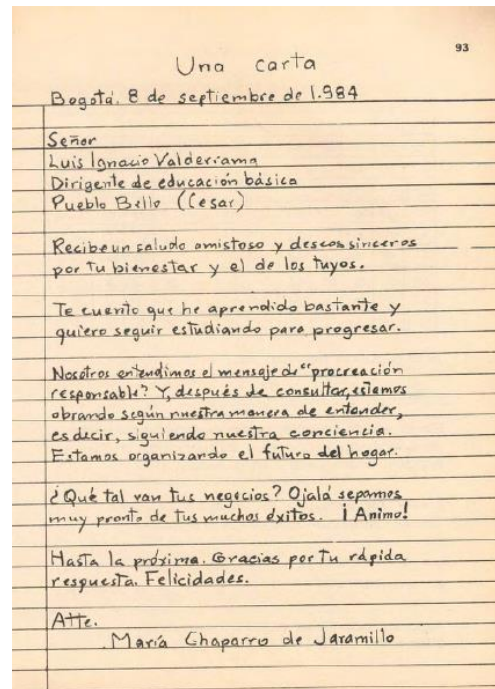 93
Una carta
Bogotá. 8 de septiembre de 1.984
Señor
Luis Ignacio Valderrama
Dirigente de educación básica
Pueblo Bello (Cesar)
Recibe un saludo amistoso y deseos sinceros
por tu bienestar y el de los tuyos.
Te cuento que he aprendido bastante y
quiero seguir estudiando para progresar.
Nosotros entendimos el mensaje de "procreación
responsable? Y, después de consultar, estamos
obrando según nuestra manera de entender,
es decir, siguiendo nuestra conciencia.
Estamos organizando el futuro del hogar.
¿Qué tal van tus negocios? Ojalá sepamos
muy pronto de tus muchos éxitos. ¡Animo!
Hasta la próxima. Gracias por tu rápida
respuesta. Felicidades.
Atte.
María Chaparro de Jaramillo